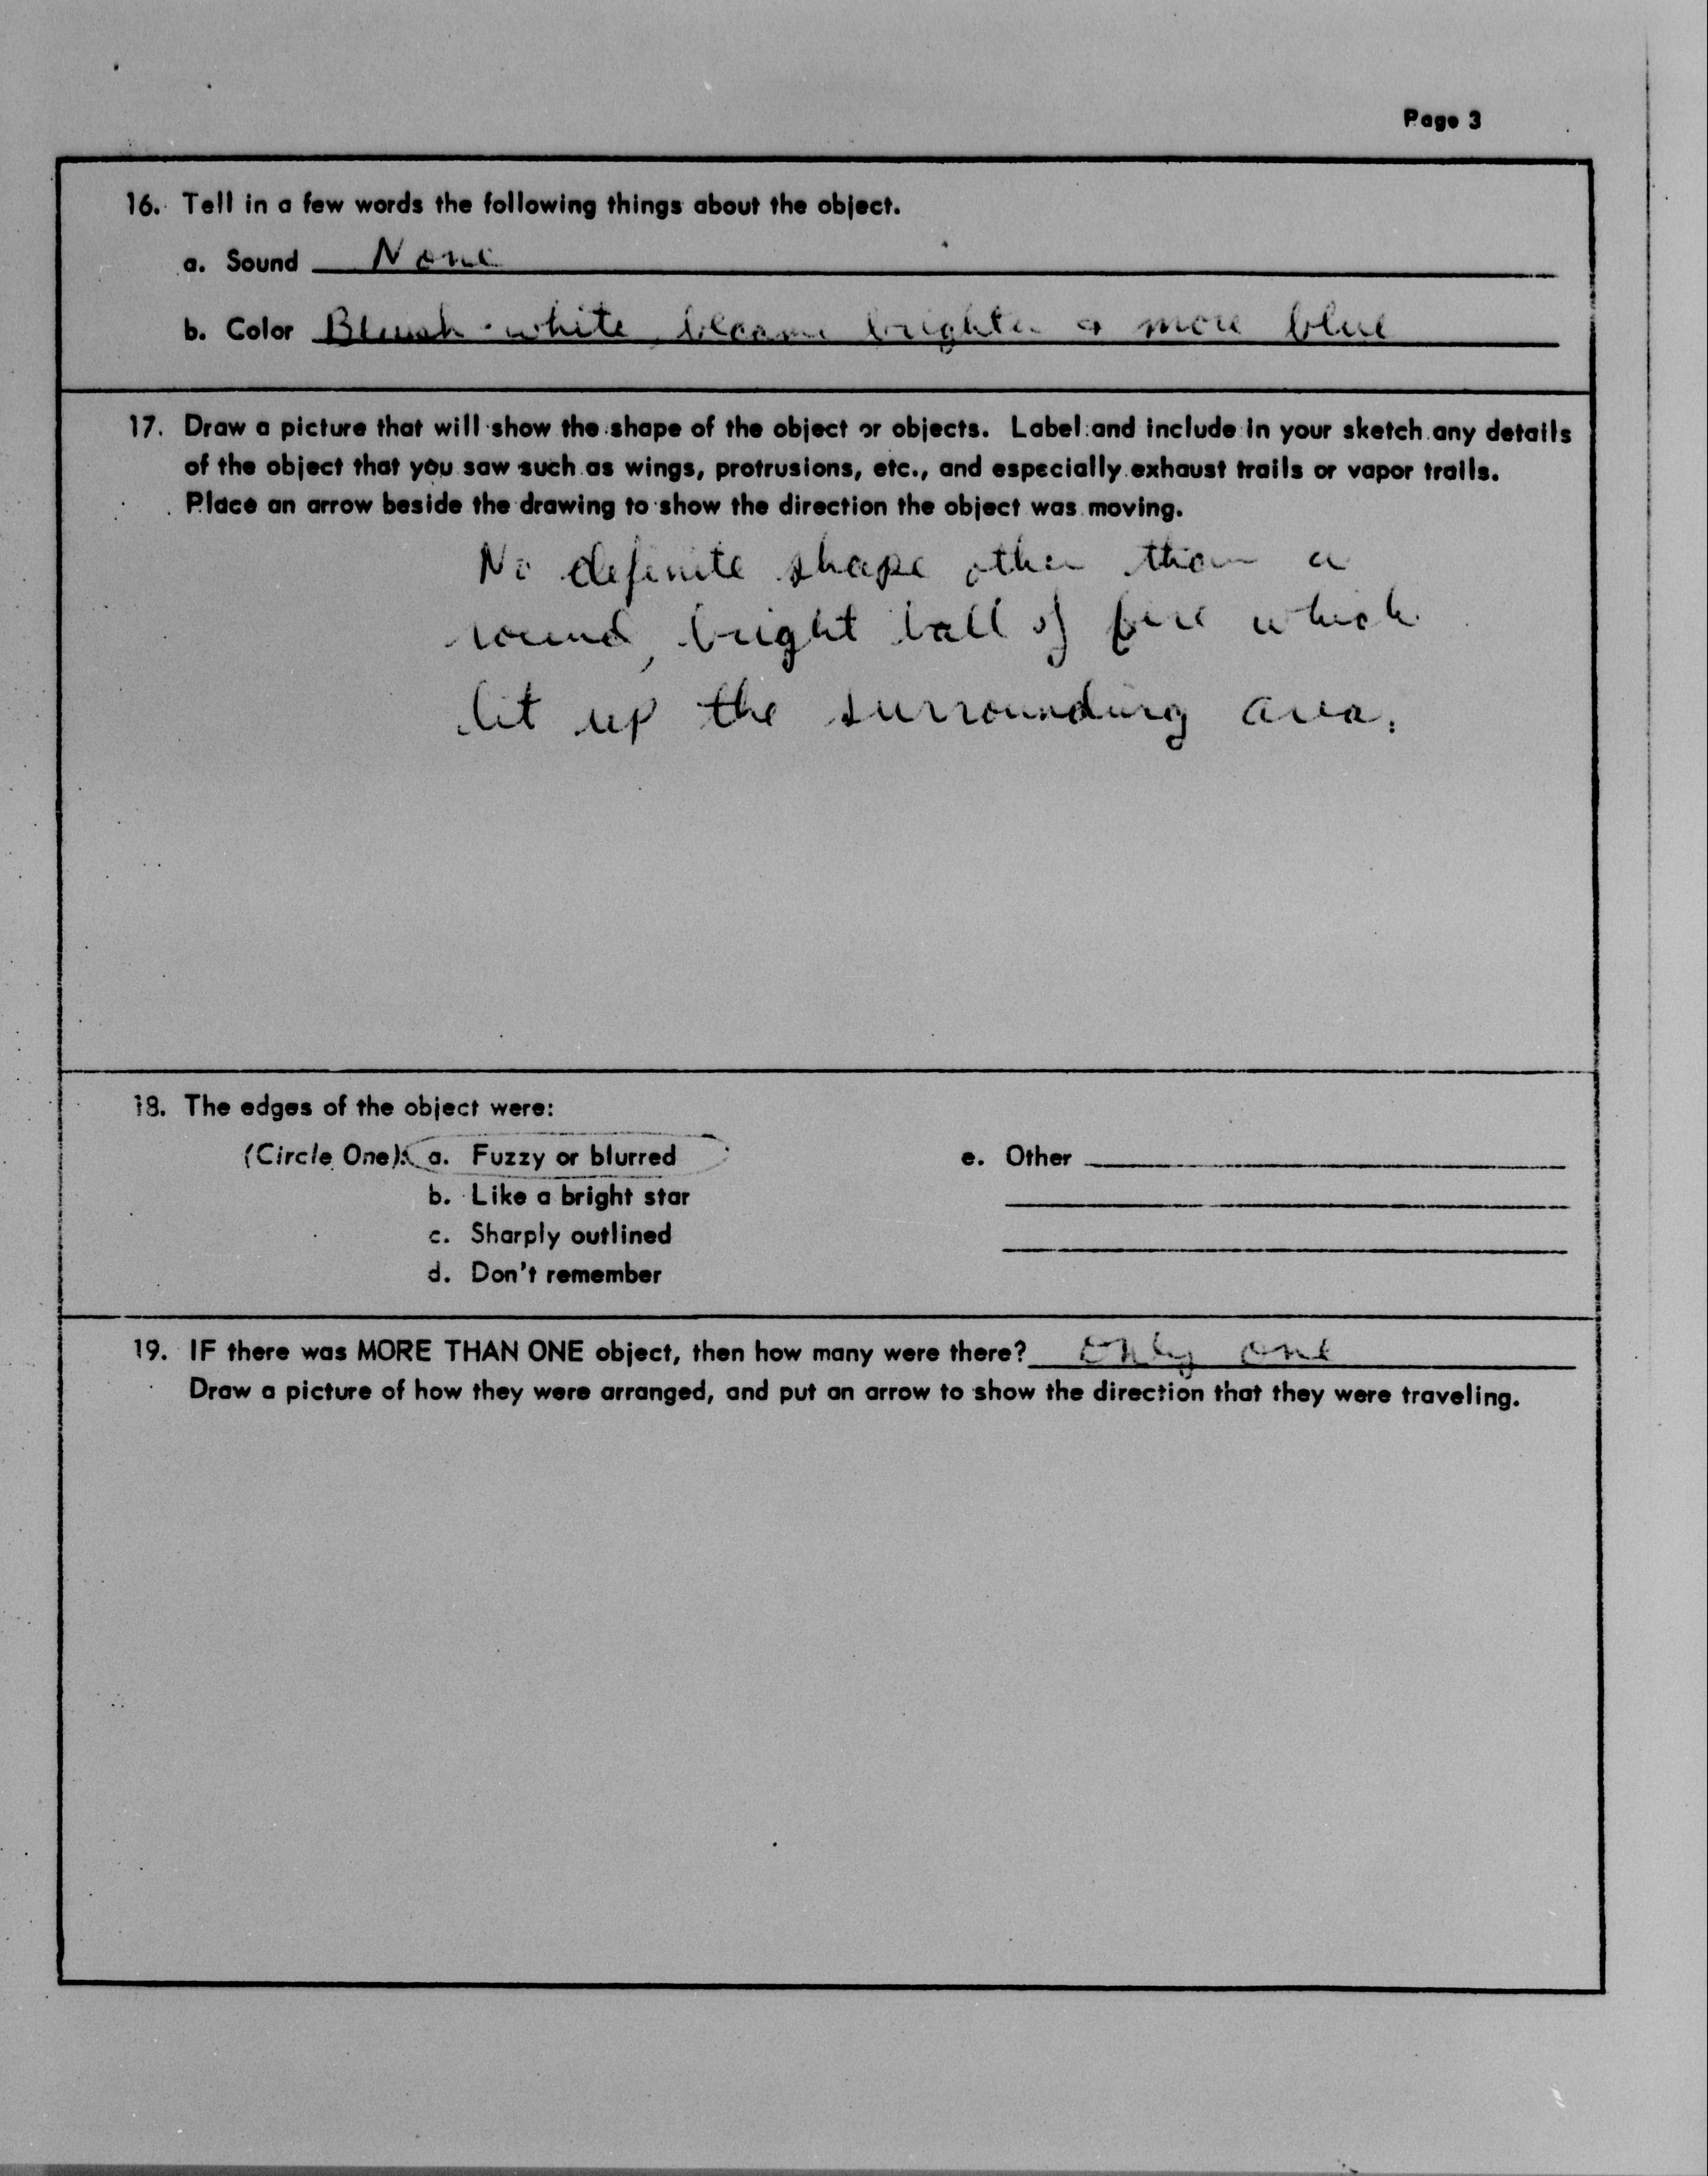 Page 3
16. Tell in a few words the following things about the object.
a. Sound None
b. Color Bluish-white, became brighter & more blue
17. Draw a picture that will show the shape of the object or objects. Label and include in your sketch any details
of the object that you saw such as wings, protrusions, etc., and especially exhaust trails or vapor trails.
Place an arrow beside the drawing to show the direction the object was moving.
No definite shape other than a
round, bright ball of fire which
lit up the surrounding area.
18. The edges of the object were:
(Circle One): a. Fuzzy or blurred e. Other
b. Like a bright star
c. Sharply outlined
d. Don't remember
19. IF there was MORE THAN ONE object, then how many were there? only one
Draw a picture of how they were arranged, and put an arrow to show the direction that they were traveling.